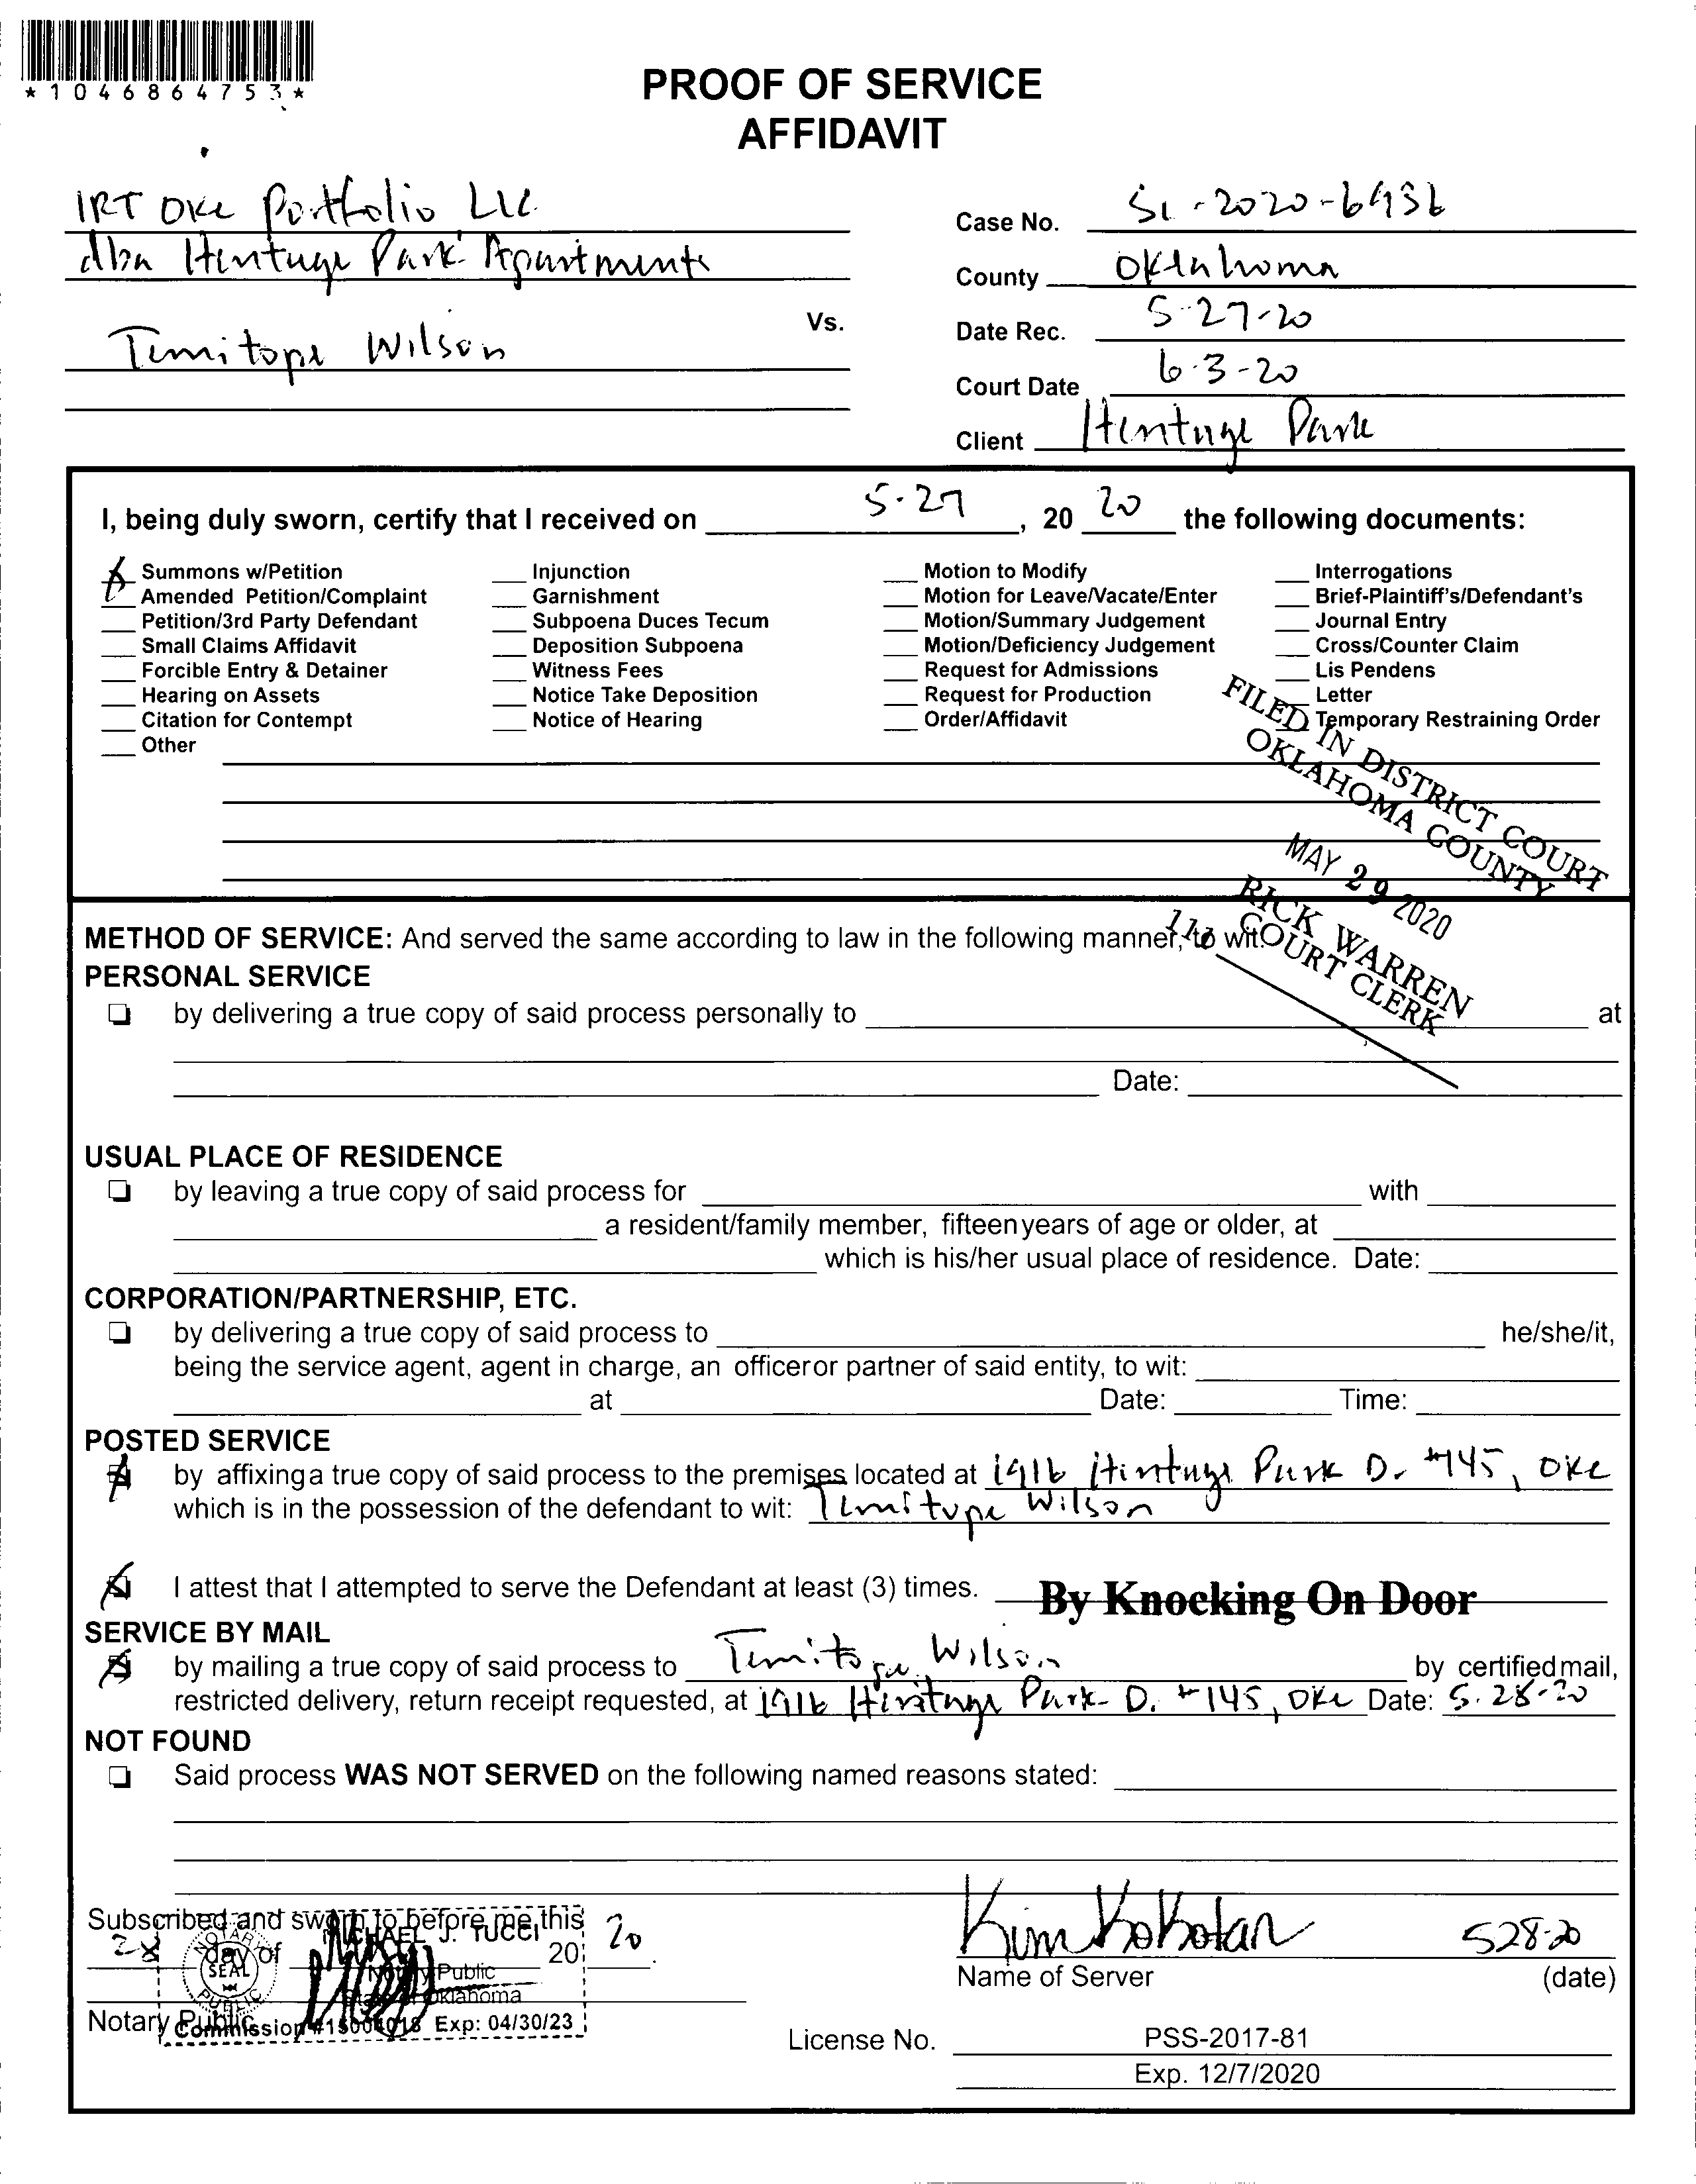 *1046864753*
PROOF OF SERVICE
AFFIDAVIT
IRT OKC Portfolio LLC
dba Heritage Park Apartments
Vs.
Temitope Wilson
Case No. SC-2020-6936
County Oklahoma
Date Rec. 5-27-20
Court Date 6-3-20
Client Heritage Park
I, being duly sworn, certify that I received on 5-27, 20 20 the following documents:
Summons w/Petition
Amended Petition/Complaint
Petition/3rd Party Defendant
Small Claims Affidavit
Forcible Entry & Detainer
Hearing on Assets
Citation for Contempt
Other
Injunction
Garnishment
Subpoena Duces Tecum
Deposition Subpoena
Witness Fees
Notice Take Deposition
Notice of Hearing
Motion to Modify
Motion for Leave/Vacate/Enter
Motion/Summary Judgement
Motion/Deficiency Judgement
Request for Admissions
Request for Production
Order/Affidavit
Interrogations
Brief-Plaintiff's/Defendant's
Journal Entry
Cross/Counter Claim
Lis Pendens
Letter
Temporary Restraining Order
FILED IN DISTRICT COURT
OKLAHOMA COUNTY
MAY 29 2020
RICK WARREN
COURT CLERK
METHOD OF SERVICE: And served the same according to law in the following manner, to wit:
PERSONAL SERVICE
by delivering a true copy of said process personally to at
Date:
USUAL PLACE OF RESIDENCE
by leaving a true copy of said process for with
a resident/family member, fifteen years of age or older, at
which is his/her usual place of residence. Date:
CORPORATION/PARTNERSHIP, ETC.
by delivering a true copy of said process to he/she/it,
being the service agent, agent in charge, an officer or partner of said entity, to wit:
at Date: Time:
POSTED SERVICE
by affixing a true copy of said process to the premises located at 1916 Heritage Park D. #145, OKC
which is in the possession of the defendant to wit: Temitope Wilson
I attest that I attempted to serve the Defendant at least (3) times. By Knocking On Door
SERVICE BY MAIL
by mailing a true copy of said process to Temitope Wilson by certified mail,
restricted delivery, return receipt requested, at 1916 Heritage Park D. #145, OKC Date: 5-28-20
NOT FOUND
Said process WAS NOT SERVED on the following named reasons stated:
Subscribed and sworn to before me this
28 day of 20 20.
MICHAEL J. TUCCI
Notary Public
State of Oklahoma
NOTARY PUBLIC SEAL
Commission Exp: 04/30/23
Notary Public
Kim Kobotan 528-20
Name of Server (date)
License No. PSS-2017-81
Exp. 12/7/2020